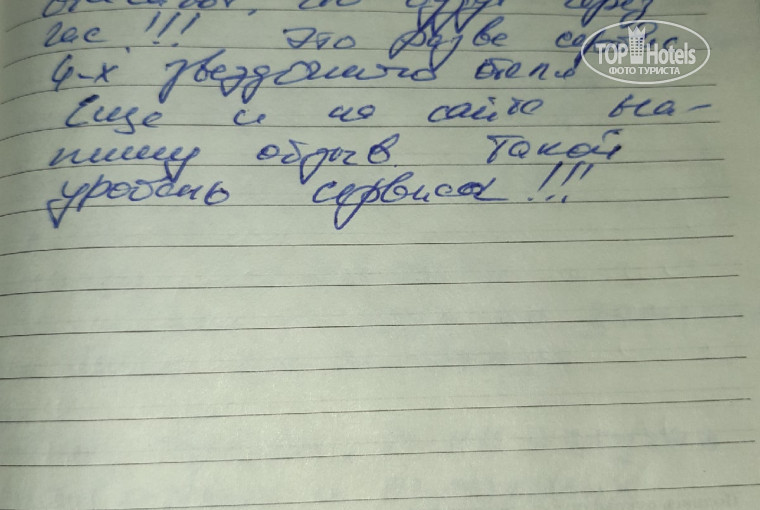 что будут через
час !!! Это разве сервис
4-х звездочного отеля
Еще и на сайте на-
пишу отзыв. Такой
уровень сервиса !!!
TOP Hotels
ФОТО ТУРИСТА